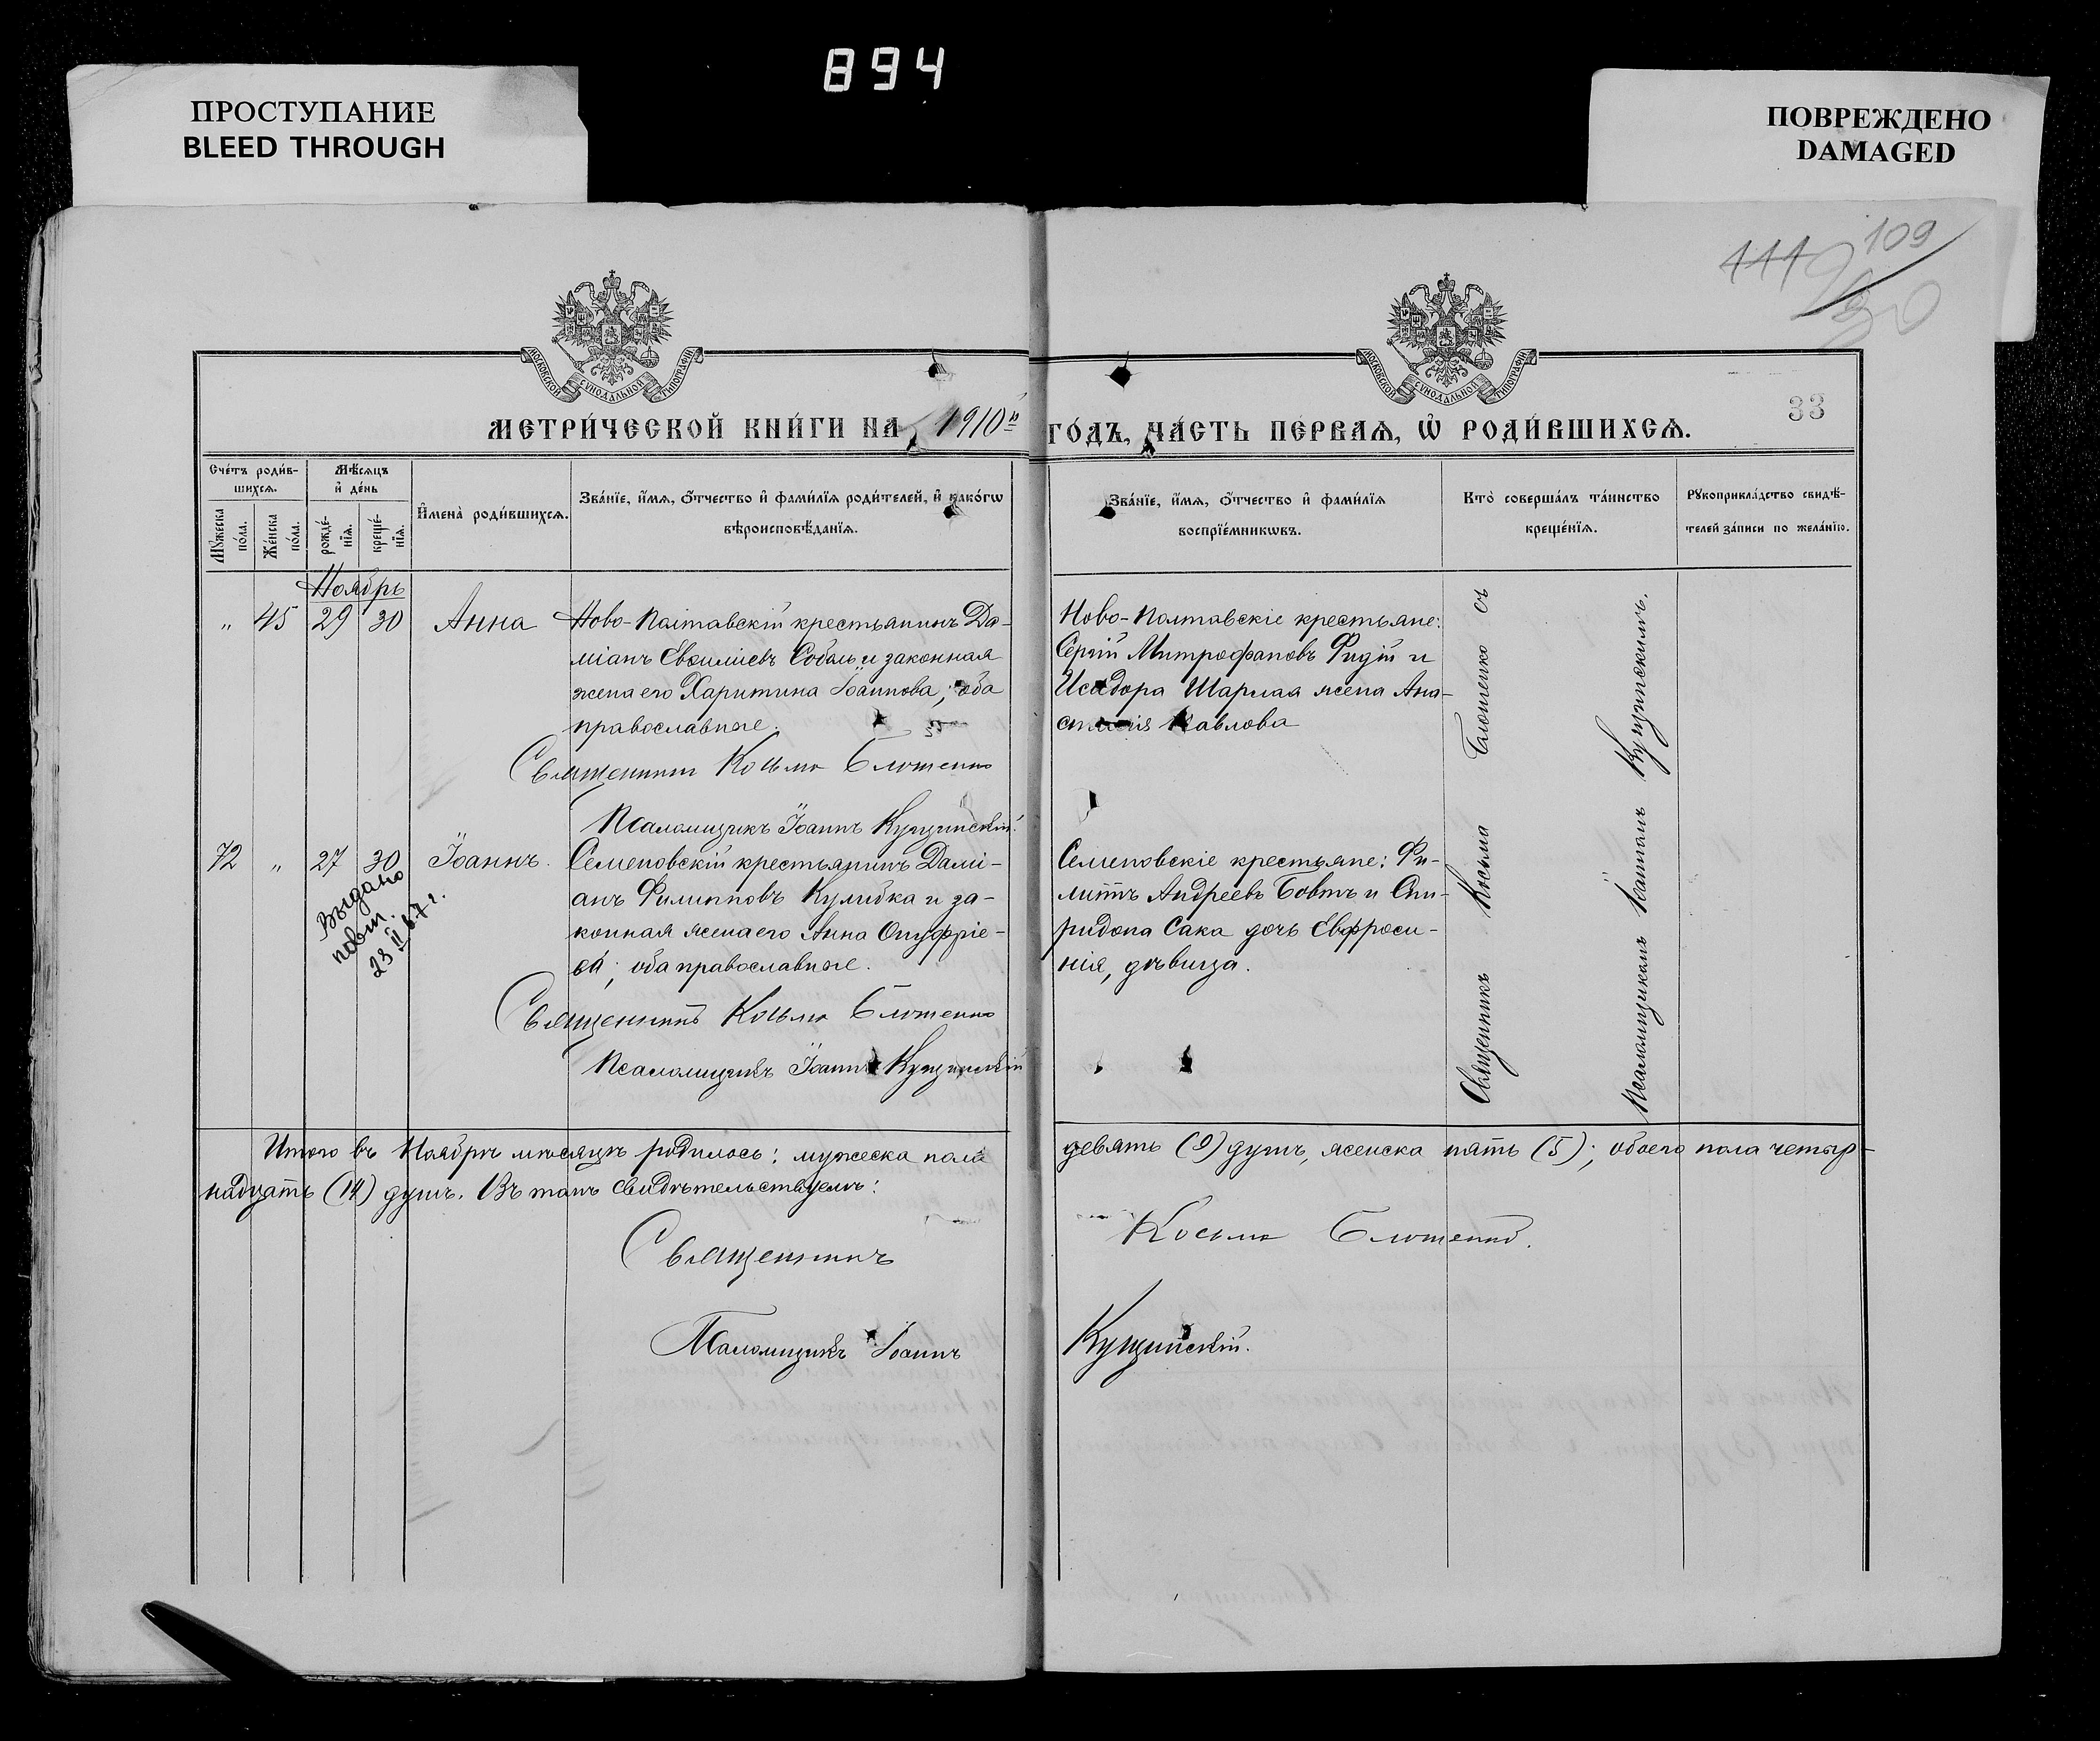 894
ПРОСТУПАНИЕ
BLEED THROUGH
ПОВРЕЖДЕНО
DAMAGED
109
111
33
МОСКОВСКОЙ СѴНОДАЛЬНОЙ ТИПОГРАФІИ
МОСКОВСКОЙ СѴНОДАЛЬНОЙ ТИПОГРАФІИ
МЕТРИ́ЧЕСКОЙ КНИ́ГИ НА 1910й ГО́ДЪ, ЧА́СТЬ ПЕ́РВАѦ, Ѡ҆ РОДИ́ВШИХСѦ.
Сче́тъ роди́в-
шихсѧ.
Мꙋ́жеска по́ла.
Же́нска по́ла.
Мѣ́сѧцъ
и҆ де́нь
рожде́-
нїѧ.
креще́-
нїѧ.
И҆мена̀ роди́вшихсѧ.
Зва́нїе, и҆́мѧ, ѻ҆́тчество и҆ фами́лїѧ роди́телей, и҆ како́гѡ
вѣроисповѣ́данїѧ.
Зва́нїе, и҆́мѧ, ѻ҆́тчество и҆ фами́лїѧ
воспрїе́мникѡвъ.
Кто̀ соверша́лъ та́инство
креще́нїѧ.
Рꙋкоприкла́дство свидѣ́-
телей за́писи по жела́нїю.
Ноябрь
" 45 29 30 Анна
Ново-Полтавскій крестьянинъ Да-
міанъ Евсиміевъ Соболь и законная
жена его Харитина Іоаннова; оба
православные.
Священникъ Косьма Блошенко
Псаломщикъ Іоаннъ Кущинскій.
Ново-Полтавскіе крестьяне:
Сергій Митрофановъ Фидій и
Исидора Шарлая жена Ана-
стасія Павлова
72 " 27 30 Іоаннъ.
Выдано
повт.
23 II 67 г.
Семеновскій крестьянинъ Дамі-
анъ Филипповъ Кулибка и за-
конная жена его Анна Онуфріе-
ва; оба православные.
Священникъ Косьма Блошенко
Псаломщикъ Іоаннъ Кущинскій
Семеновскіе крестьяне: Фи-
липпъ Андреевъ Бовтъ и Спи-
ридона Сака дочь Евфроси-
нія, дѣвица.
Священникъ Косьма Блошенко съ
Псаломщикомъ Іоанномъ Кущинскимъ.
Итого въ Ноябрѣ мѣсяцѣ родилось: мужеска пола девять (9) душъ, женска пять (5); обоего пола четыр-
надцать (14) душъ. Въ томъ свидѣтельствуемъ:
Священникъ Косьма Блошенко.
Псаломщикъ Іоаннъ Кущинскій.